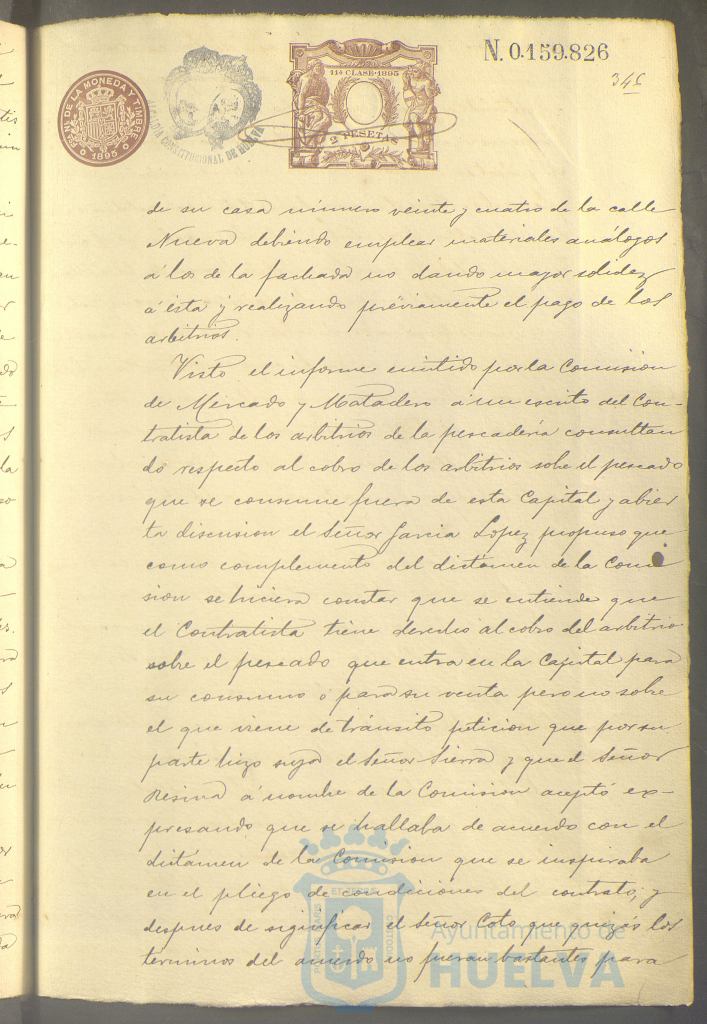 N. 0.159.826
345
FAB. NAL. DE LA MONEDA Y TIMBRE
1895
ALCALDIA CONSTITUCIONAL DE HUELVA
11ª CLASE·1895
2 PESETAS
de su casa número veinte y cuatro de la calle
Nueva debiendo emplear materiales análogos
á los de la fachada no dando mayor solidez
á ésta y realizando préviamente el pago de los
arbitrios.
Visto el informe emitido por la Comision
de Mercado y Matadero á un escrito del Con-
tratista de los arbitrios de la pescadería consultan
do respecto al cobro de los arbitrios sobre el pescado
que se consume fuera de esta Capital y abier
ta discusion el Señor Garcia Lopez propuso que
como complemento del dictámen de la Comi
sion se hiciera constar que se entiende que
el Contratista tiene derecho al cobro del arbitrio
sobre el pescado que entra en la Capital para
su consumo ó para su venta pero no sobre
el que viene de tránsito peticion que por su
parte hizo suya el Señor Sierra y que el Señor
Resina á nombre de la Comision aceptó ex-
presando que se hallaba de acuerdo con el
dictámen de la Comision que se inspiraba
en el pliego de condiciones del contrato; y
despues de significar el Señor Coto que quizás los
terminos del acuerdo no fueran bastantes para
Ayuntamiento de
HUELVA